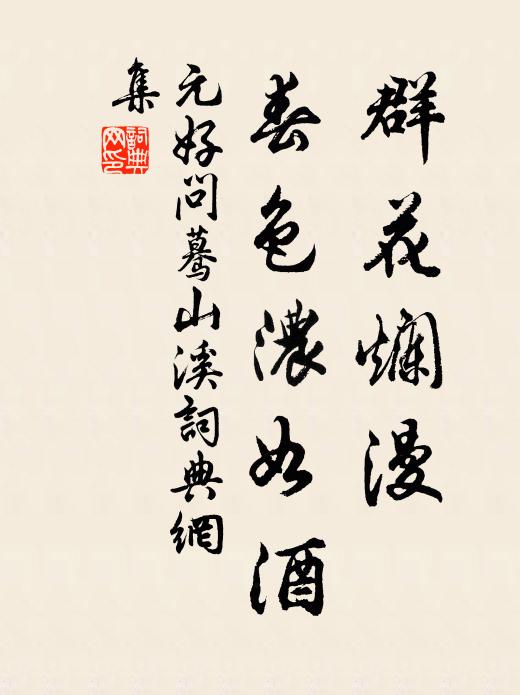 群花爛漫
春色濃如酒
元好問驀山溪詞典網
集
詞典
网印